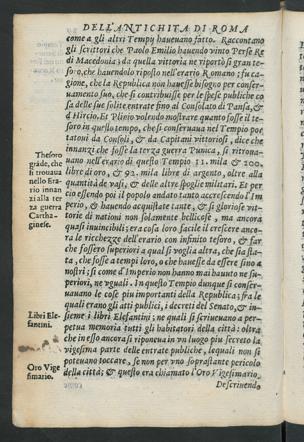 DELL'ANTICHITA DI ROMA
come a gli altri Tempy haueuano fatto. Raccontano
gli scrittori che Paolo Emilio hauendo vinto Perse Re
di Macedonia; da quella vittoria ne riportò si gran te-
soro, che hauendolo riposto nell'erario Romano; fu ca-
gione, che la Republica non hauesse bisogno per conser-
uamento suo, che si contribuisse per le spese publiche co
sa delle sue solite entrate fino al Consolato di Pansa, &
d'Hircio. Et Plinio volendo mostrare quanto fosse il te-
soro in questo tempo, che si conseruaua nel Tempio por
tatoui da Consoli, & da Capitani vittoriosi, dice che
innanzi che fosse la terza guerra Punica, si ritroua-
uano nell'erario di questo Tempio 11. mila & 200.
libre di oro, & 92. mila libre di argento, oltre alla
quantità de vasi, & delle altre spoglie militari. Et per
cio essendo poi il popolo andato tanto accrescendo l'Im
perio, & hauendo hauute tante, & si gloriose vit-
torie di nationi non solamente bellicose, ma ancora
quasi inuincibili; era cosa loro facile il crescere anco-
ra le ricchezze dell'erario con infinito tesoro, & far
che fossero superiori a qual si voglia altra, che sia sta-
ta, che fosse a tempi loro, o che hauesse da essere fino a
nostri; si come d'Imperio non hanno mai hauuto ne su-
periori, ne vguali. In questo Tempio dunque si conser-
uauano le cose piu importanti della Republica; fra le
quali erano gli atti publici, i decreti del Senato, & in-
sieme i libri Elefantini; ne quali si scriueuano a per-
petua memoria tutti gli habitatori della città: oltra
che in esso ancora si riponeua in vn luogo piu secreto la
vigesima parte delle entrate publiche, lequali non si
poteuano toccare, se non per vno soprastante pericolo
della città; & questo era chiamato l'Oro Vigesimario.
Descriuendo
Thesoro
grãde, che
si trouaua
nello Era-
rio innan
zi alla ter
za guerra
Cartha-
ginese.
Libri Ele-
fantini.
Oro Vige
simario.